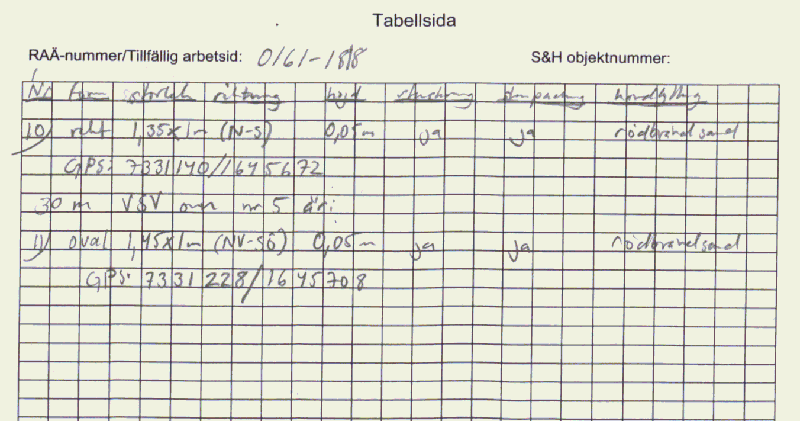 Tabellsida
RAÄ-nummer/Tillfällig arbetsid: 0161-1818 S&H objektnummer:
Nr form storlek riktning höjd
10) rekt 1,35x1m (N-S) 0,05m ja ja rödbränd sand
GPS: 7331140//1645672
30 m VSV om nr 5 är:
11) oval 1,45x1m (NV-SÖ) 0,05m ja ja rödbränd sand
GPS: 7331228/1645708